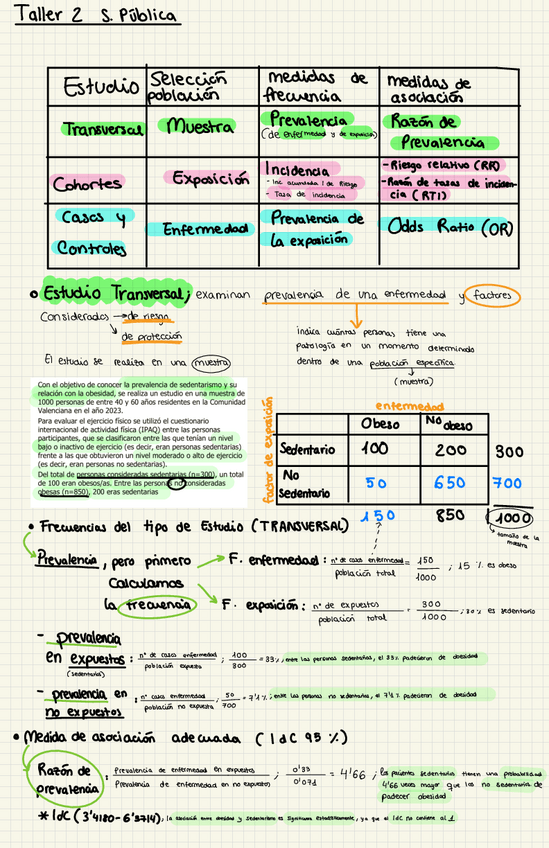 Taller 2 S. Pública
Estudio
Selección población
medidas de frecuencia
medidas de asociación
Transversal
Muestra
Prevalencia
(de enfermedad y de exposición)
Razón de Prevalencia
Cohortes
Exposición
Incidencia
- Inc acumulada / de Riesgo
- Tasa de incidencia
- Riesgo relativo (RR)
- Razón de tasas de inciden-
cia (RTI)
Casos y
Controles
Enfermedad
Prevalencia de
la exposición
Odds Ratio (OR)
Estudio Transversal; examinan prevalencia de una enfermedad y factores
Considerados → de riesgo
de protección
indica cuántas personas tiene una
patología en un momento determinado
dentro de una población específica
(muestra)
El estudio se realiza en una muestra
Con el objetivo de conocer la prevalencia de sedentarismo y su
relación con la obesidad, se realiza un estudio en una muestra de
1000 personas de entre 40 y 60 años residentes en la Comunidad
Valenciana en el año 2023.
Para evaluar el ejercicio físico se utilizó el cuestionario
internacional de actividad física (IPAQ) entre las personas
participantes, que se clasificaron entre las que tenían un nivel
bajo o inactivo de ejercicio (es decir, eran personas sedentarias)
frente a las que obtuvieron un nivel moderado o alto de ejercicio
(es decir, eran personas no sedentarias).
Del total de personas consideradas sedentarias (n=300), un total
de 100 eran obesos/as. Entre las personas no consideradas
obesas (n=850), 200 eran sedentarias
enfermedad
factor de exposición
Obeso
No obeso
Sedentario 100 200 300
No
Sedentario 50 650 700
150 850 1000
→ tamaño de la
muestra
• Frecuencias del tipo de Estudio (TRANSVERSAL)
Prevalencia, pero primero
Calculamos
la frecuencia
F. enfermedad : nº de casos enfermedad / población total = 150 / 1000 ; 15 % es obeso
F. exposición : nº de expuestos / población total = 300 / 1000 ; 30% es sedentario
- prevalencia
en expuestos : nº de casos enfermedad / población expuesta ; 100 / 300 = 33%, entre las personas sedentarias, el 33% padecieron de obesidad
(sedentarios)
- prevalencia en
no expuestos : nº casos enfermedad / población no expuesta ; 50 / 700 = 7'1% ; entre las personas no sedentarias, el 7'1% padecieron de obesidad
• Medida de asociación adecuada (IdC 95 %)
Razón de
prevalencia : Prevalencia de enfermedad en expuestos / Prevalencia de enfermedad en no expuestos ; 0'33 / 0'071 = 4'66 ; los pacientes sedentarios tienen una probabilidad
4'66 veces mayor que los no sedentarios de
padecer obesidad
* IdC (3'4180 - 6'3714), la asociación entre obesidad y sedentarismo es significativa estadísticamente, ya que el IdC no contiene al 1